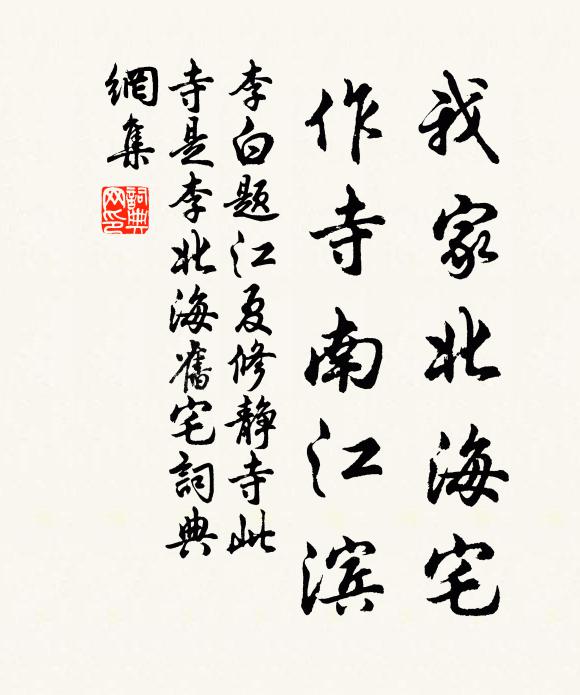 我家北海宅
作寺南江滨
李白题江夏修静寺此
寺是李北海旧宅詞典
網集
詞典
网印